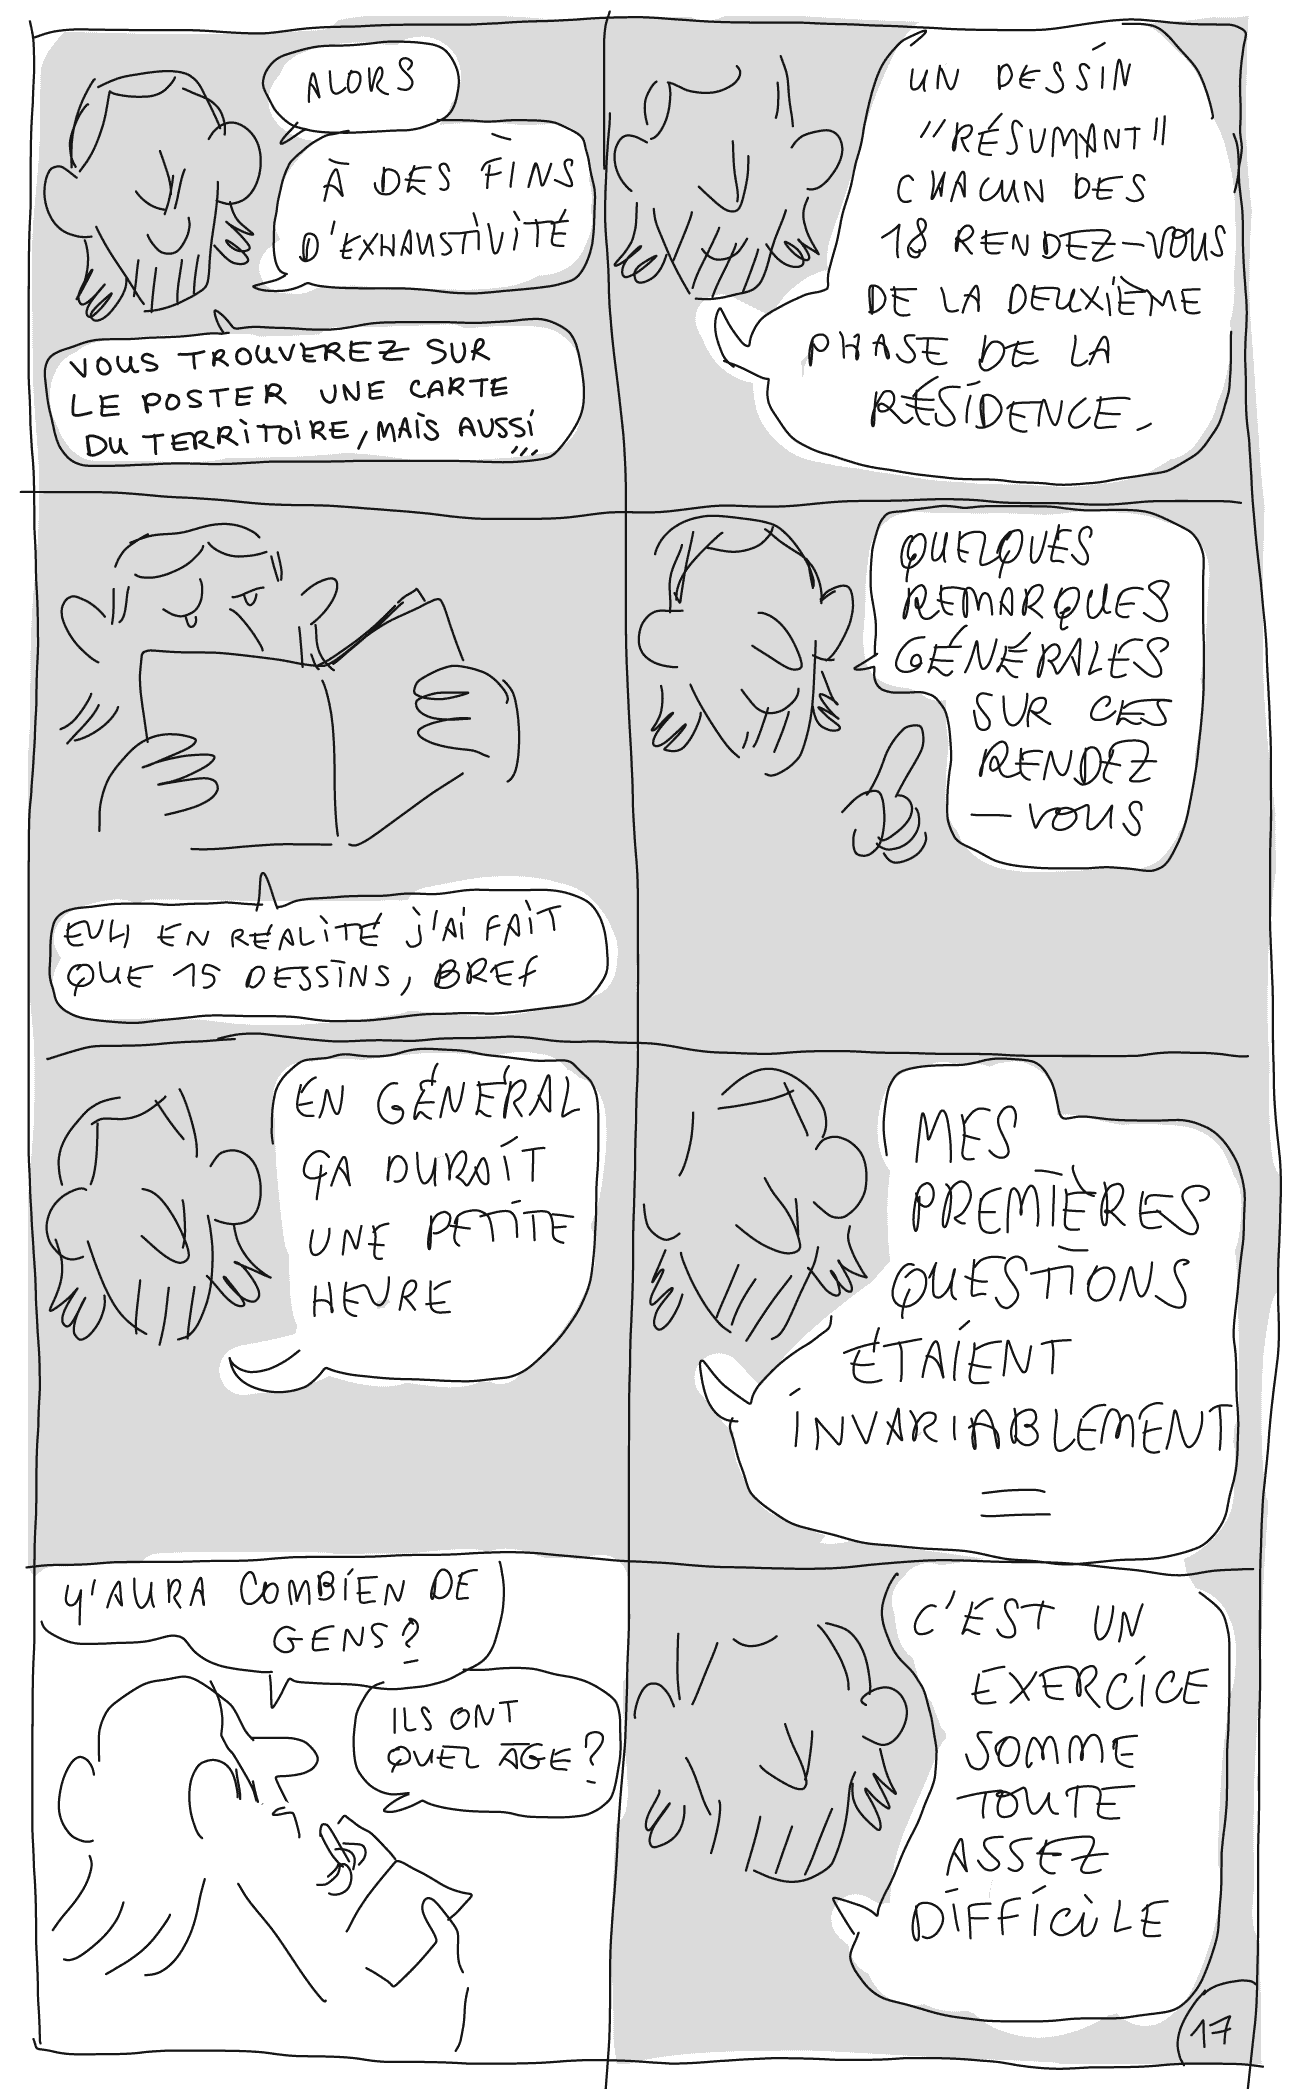 ALORS
À DES FINS
D'EXHAUSTIVITÉ
VOUS TROUVEREZ SUR
LE POSTER UNE CARTE
DU TERRITOIRE, MAIS AUSSI
,,,
UN DESSIN
"RÉSUMANT"
CHACUN DES
18 RENDEZ-VOUS
DE LA DEUXIÈME
PHASE DE LA
RÉSIDENCE.
EUH EN RÉALITÉ J'AI FAIT
QUE 15 DESSINS, BREF
QUELQUES
REMARQUES
GÉNÉRALES
SUR CES
RENDEZ
-VOUS
EN GÉNÉRAL
ÇA DURAIT
UNE PETITE
HEURE
MES
PREMIÈRES
QUESTIONS
ÉTAIENT
INVARIABLEMENT
=
Y'AURA COMBIEN DE
GENS?
ILS ONT
QUEL ÂGE?
C'EST UN
EXERCICE
SOMME
TOUTE
ASSEZ
DIFFICILE
17